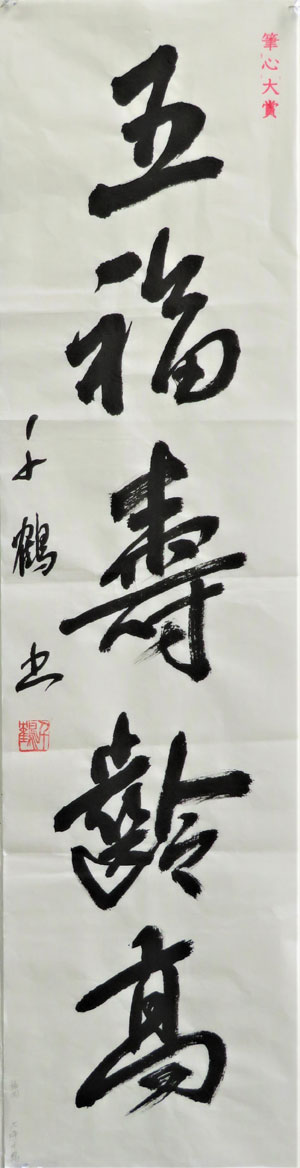 筆心大賞
五福壽齡高
千鶴書